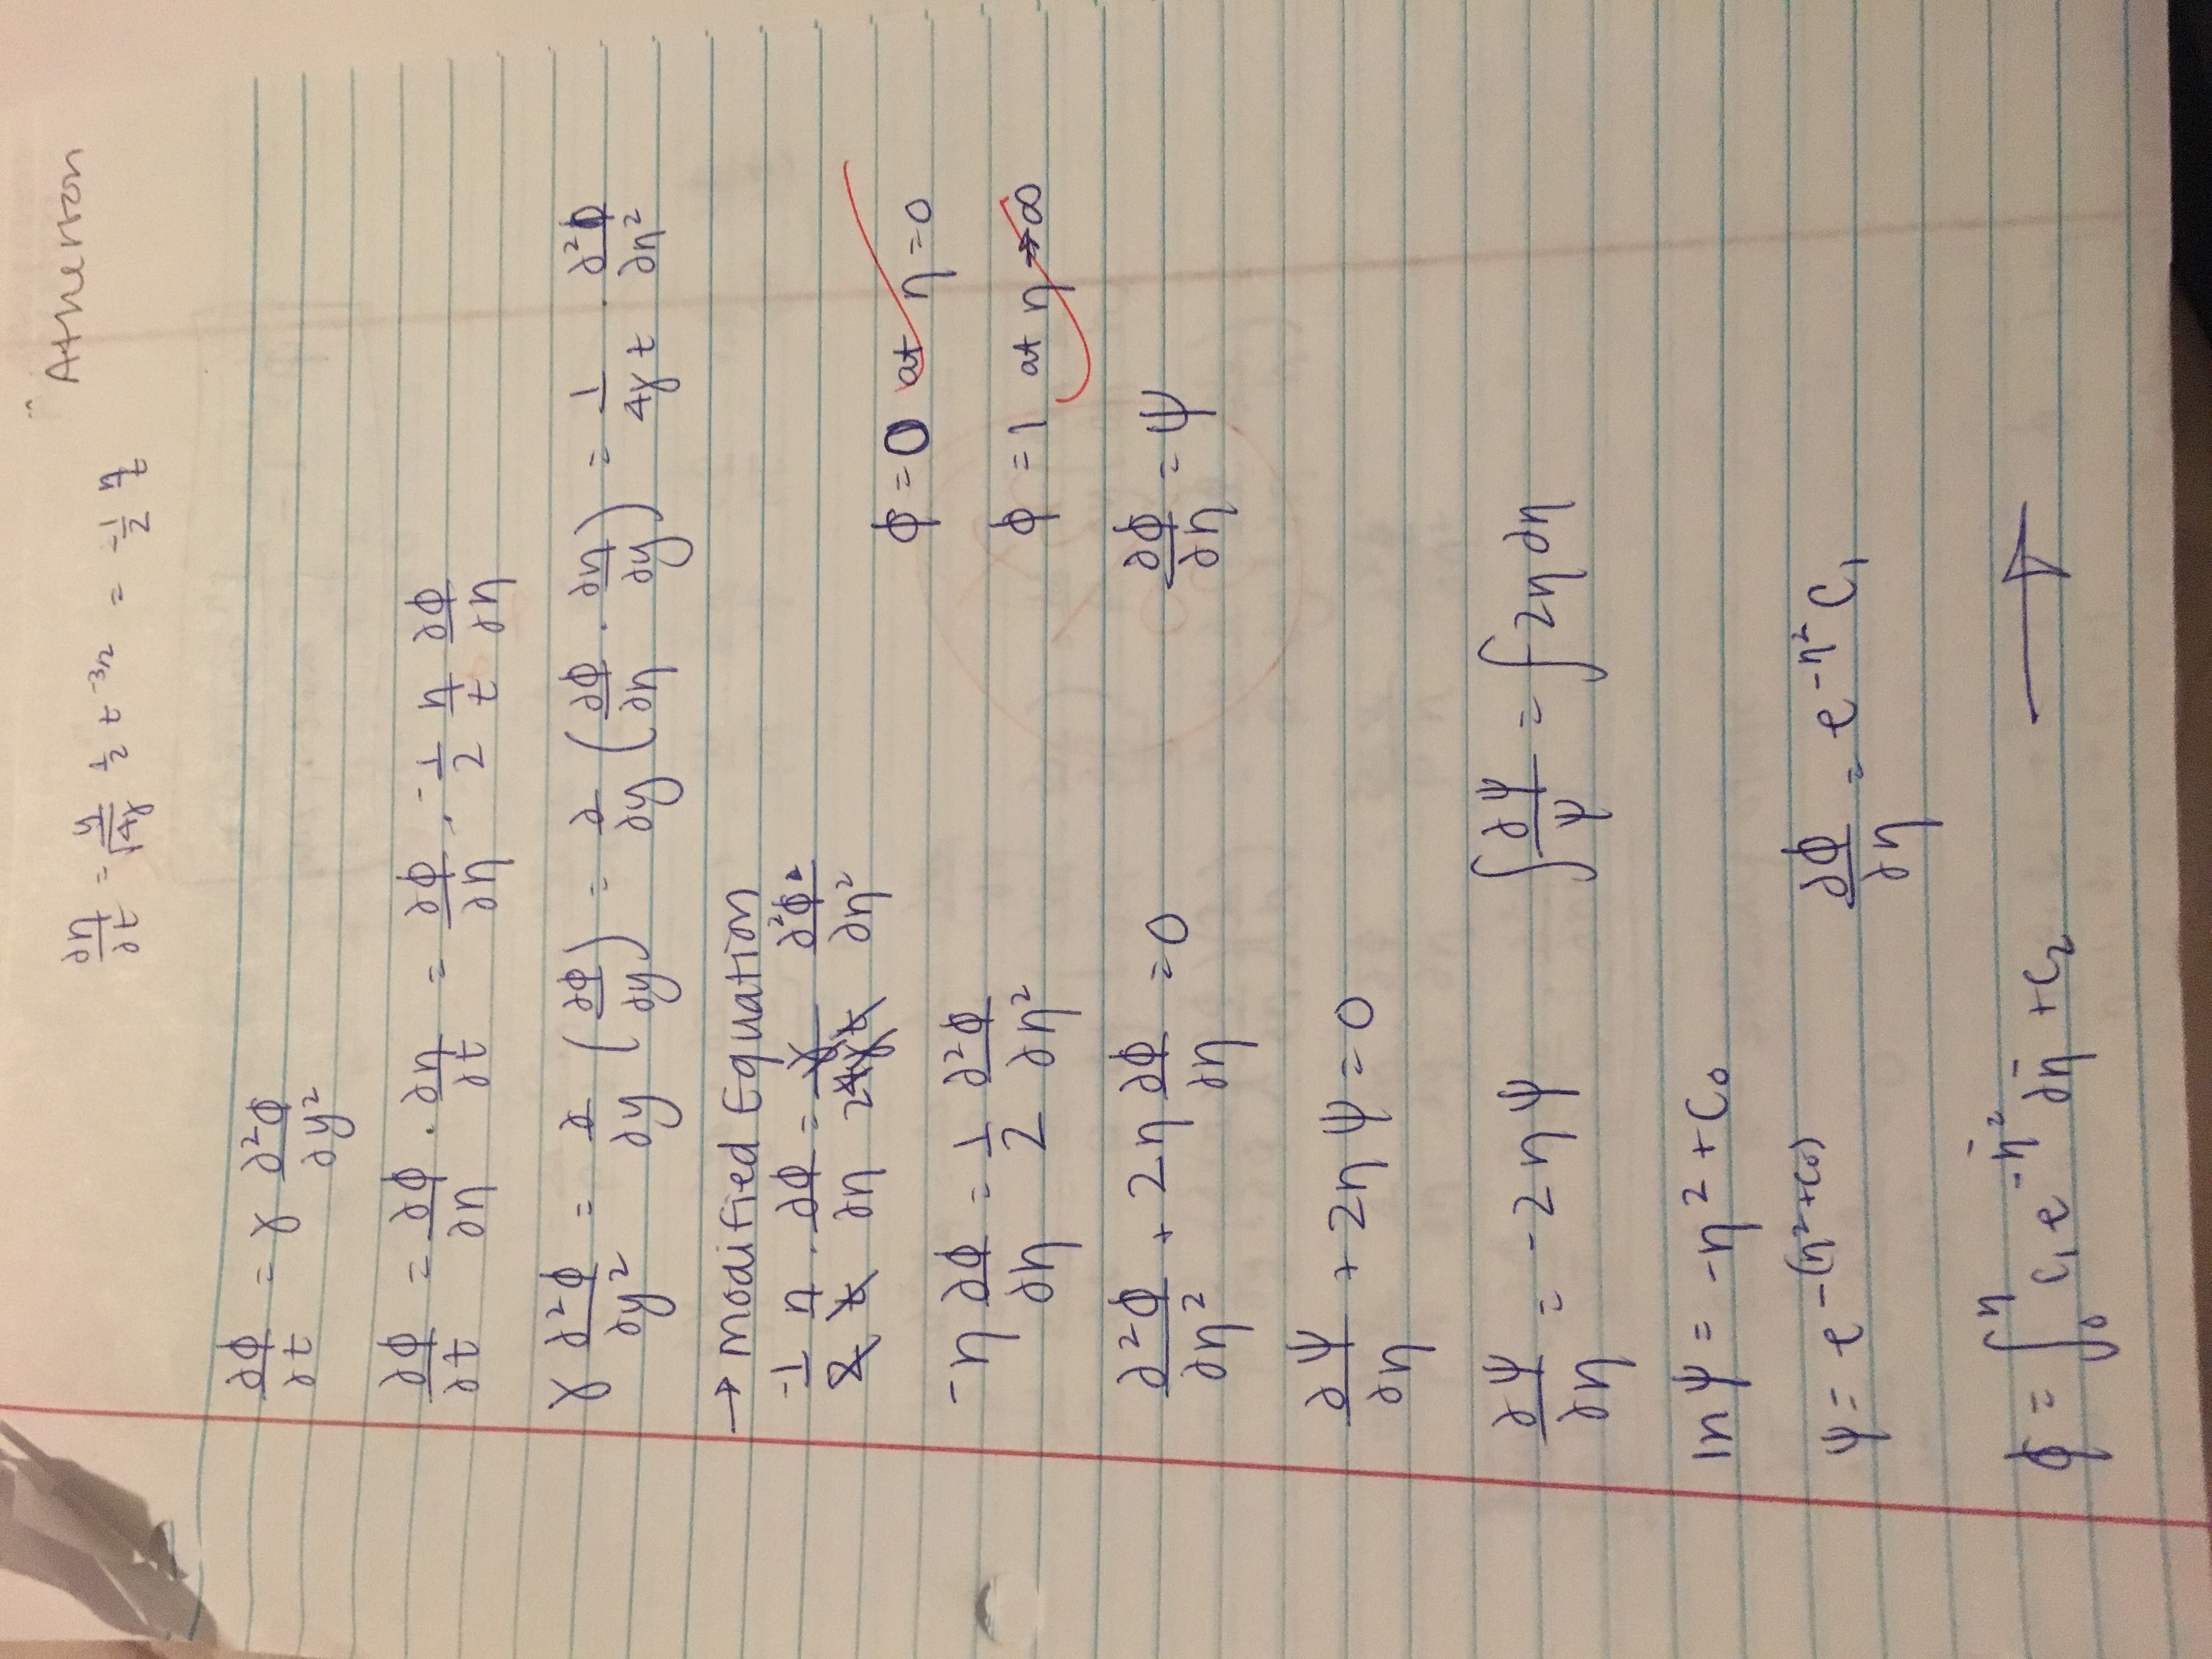 Atherton
∂η/∂t = y/√4γ 1/2 t^-3/2 = -1/2 η/t
∂ϕ/∂t = γ ∂²ϕ/∂y²
∂ϕ/∂t = ∂ϕ/∂η · ∂η/∂t = ∂ϕ/∂η · -1/2 η/t ∂ϕ/∂η
γ ∂²ϕ/∂y² = ∂/∂y (∂ϕ/∂y) = ∂/∂y (∂ϕ/∂η · ∂η/∂y) = 1/4γt · ∂²ϕ/∂η²
→ Modified Equation
-1/2 η/t · ∂ϕ/∂η = γ/24γt ∂²ϕ/∂η²
ϕ = 0 at η = 0
-η ∂ϕ/∂η = 1/2 ∂²ϕ/∂η²
ϕ = 1 at η → ∞
∂²ϕ/∂η² + 2η ∂ϕ/∂η = 0
∂ϕ/∂η = ψ
∂ψ/∂η + 2η ψ = 0
∂ψ/∂η = -2ηψ
∫ ∂ψ/ψ = ∫ 2η ∂η
ln ψ = -η² + C₀
ψ = e^-(η² + C₀)
∂ϕ/∂η = e^-η² C₁
ϕ = ∫₀^η C₁ e^-η̄² ∂η̄ + C₂ →